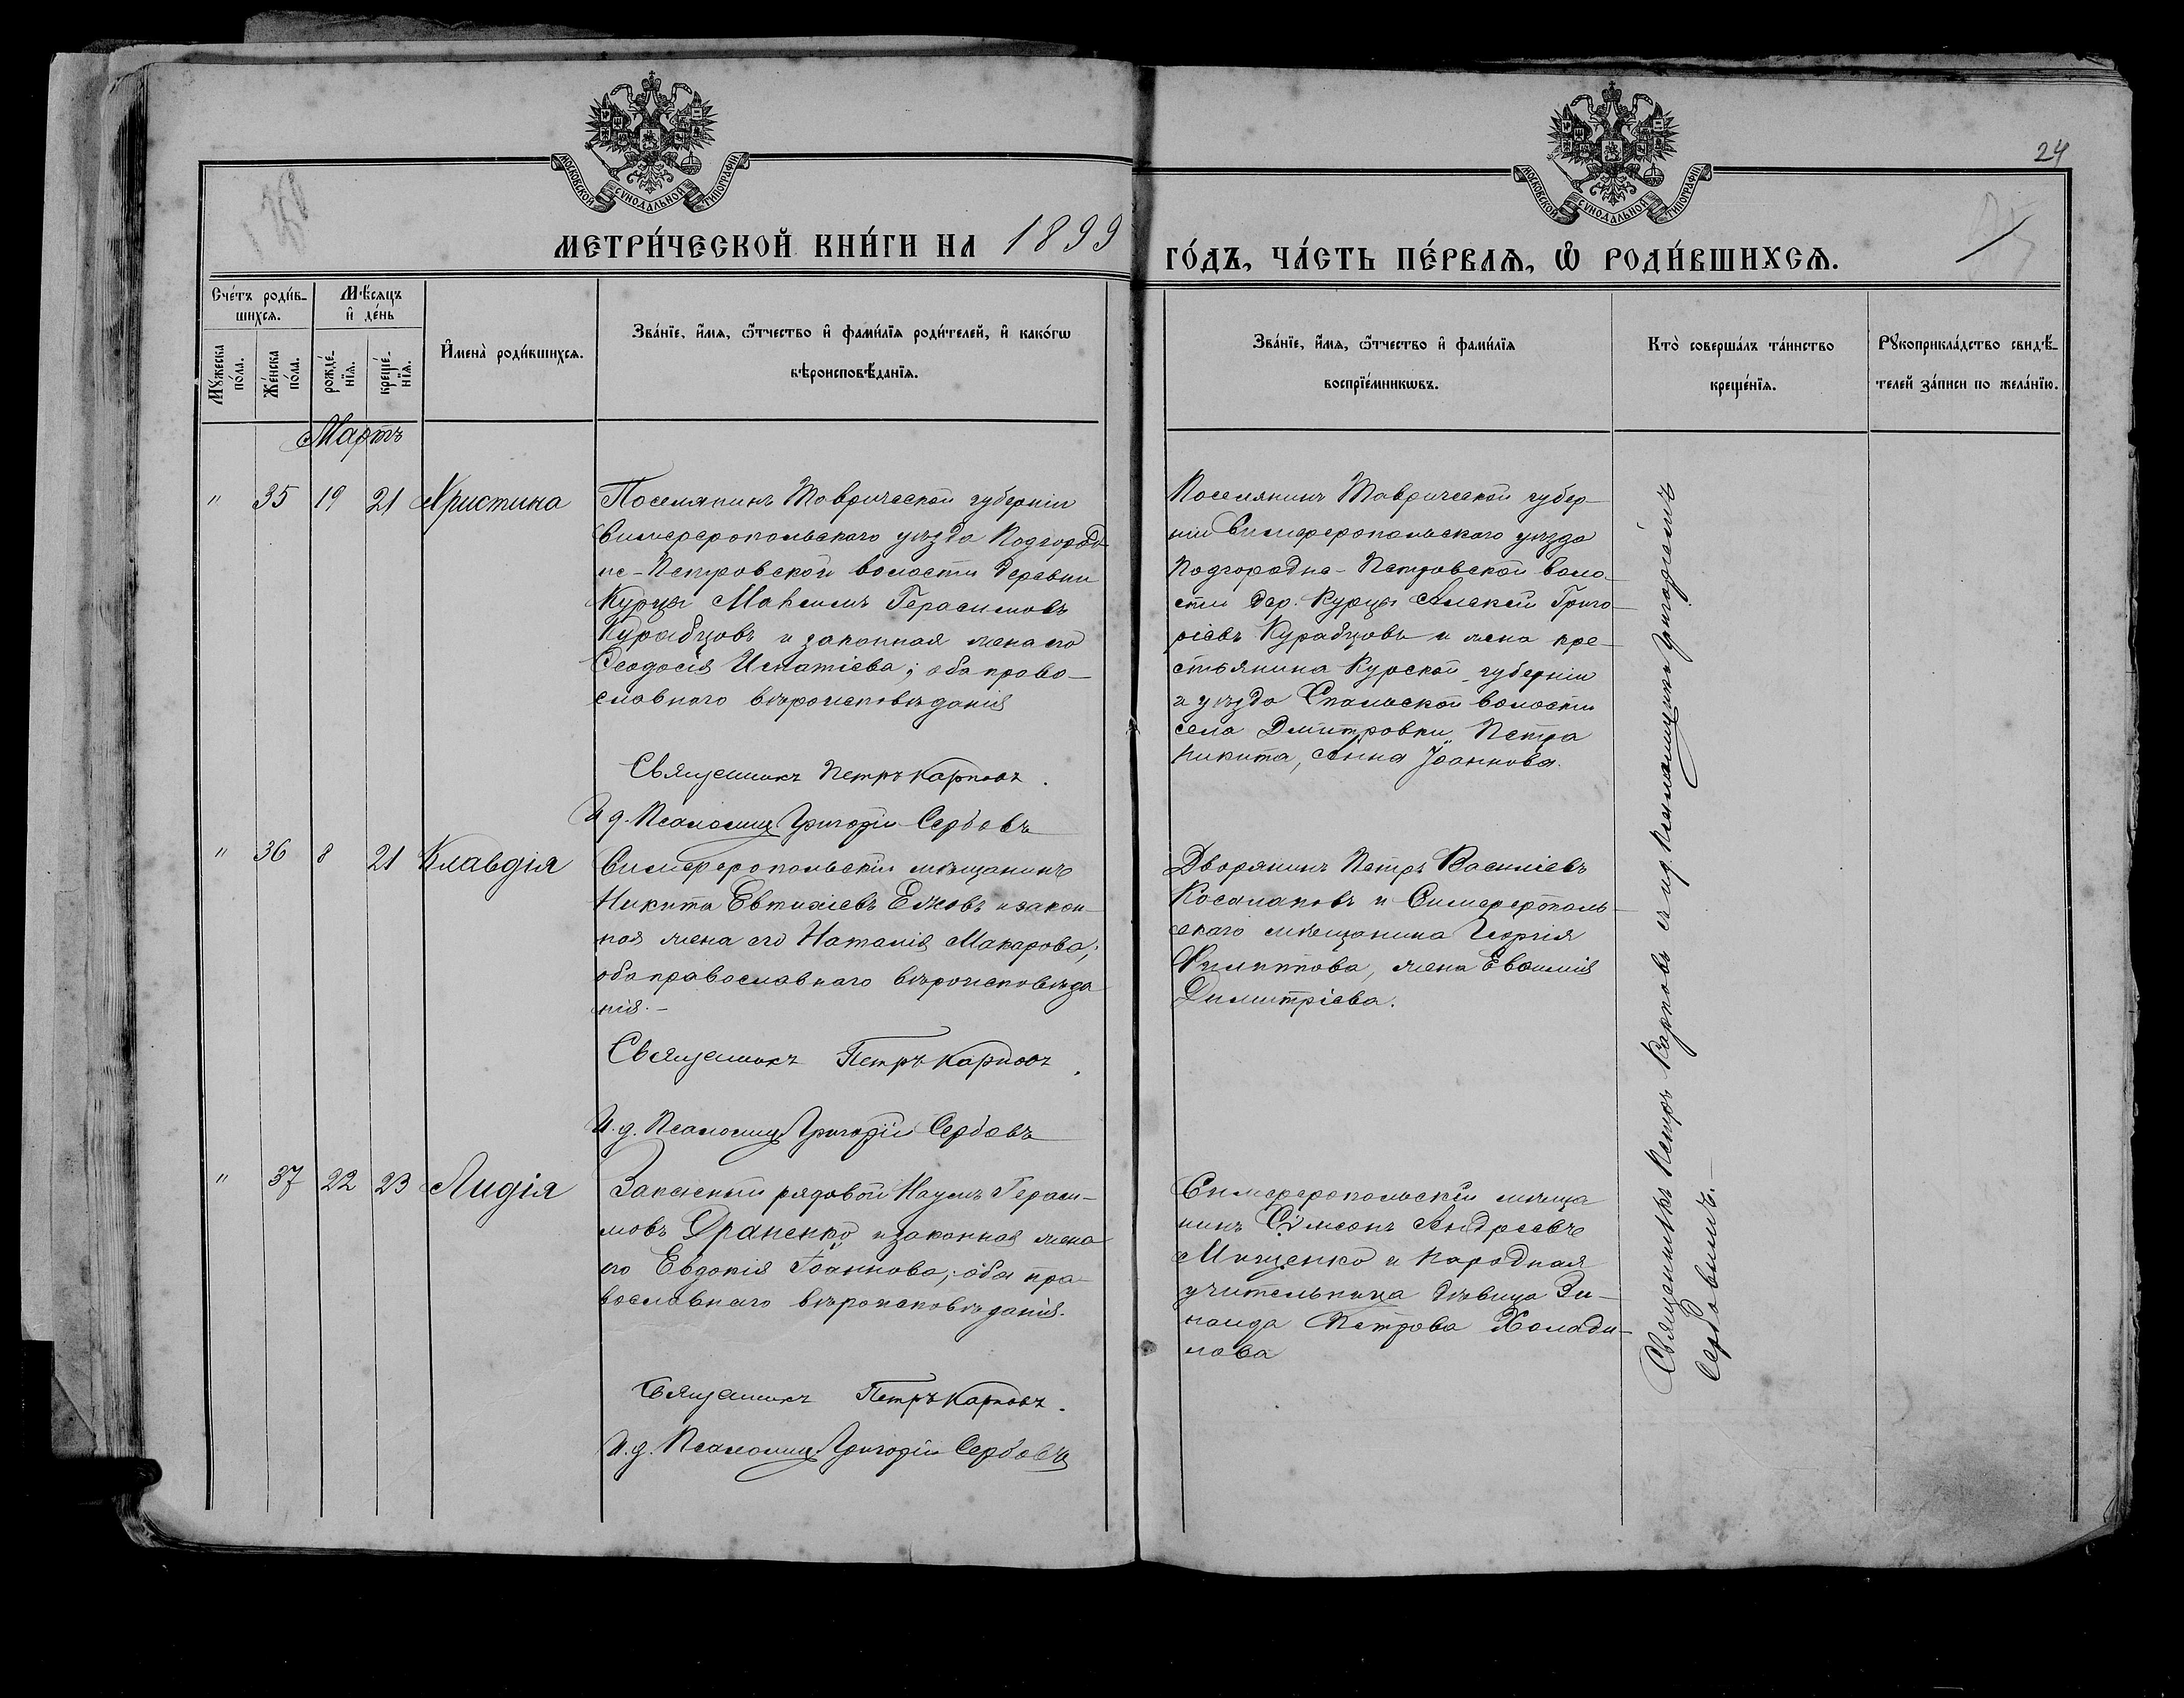 24
МОСКОВСКОЙ СУНОДАЛЬНОЙ ТИПОГРАФІИ
МОСКОВСКОЙ СУНОДАЛЬНОЙ ТИПОГРАФІИ
МЕТРИ́ЧЕСКОЙ КНИ́ГИ НА 1899
ГО́ДЪ, ЧА́СТЬ ПЕ́РВАѦ, Ѡ РОДИ́ВШИХСѦ.
Сче́тъ роди́в-
шихсѧ.
Мѣ́сѧцъ
и҆ де́нь
Мꙋ́жеска
по́ла.
Же́нска
по́ла.
рожде́-
нїѧ.
креще́-
нїѧ.
И҆мена̀ роди́вшихсѧ.
Зва́нїе, и҆́мѧ, ѻ҆́тчество и҆ фами́лїѧ роди́телей, и҆ како́гѡ
вѣроисповѣ́данїѧ.
Зва́нїе, и҆́мѧ, ѻ҆́тчество и҆ фами́лїѧ
воспрїе́мникѡвъ.
Кто̀ соверша́лъ та́инство
креще́нїѧ.
Рꙋкоприкла́дство свидѣ́-
телей за́писи по жела́нїю.
Мартъ
" 35 19 21 Христина
Поселянинъ Таврической губерніи
Симферопольскаго уѣзда Подгородно-
не-Петровской волости деревни
Курцы Максимъ Герасимовъ
Курабцовъ и законная жена его
Ѳеодосія Игнатіева; оба право-
славнаго вѣроисповѣданія
Священникъ Петръ Карповъ.
И д. Псаломщ. Григорій Сербовъ
Поселянинъ Таврической губер-
ніи Симферопольскаго уѣзда
Подгородне-Петровской воло-
сти дер. Курцы Алексій Григо-
ріевъ Курабцовъ и жена кре-
стьянина Курской губерніи
и уѣзда Спальской волости
села Дмитровки Петра
Никита, Анна Іоаннова.
" 36 8 21 Клавдія
Симферопольскій мѣщанинъ
Никита Евтихіевъ Ежовъ и закон-
ная жена его Наталія Макарова;
оба православнаго вѣроисповѣда
нія.-
Священникъ Петръ Карповъ.
И.д. Псаломщ. Григорій Сербовъ
Дворянинъ Петръ Василіевъ
Косолаповъ и Симферополь-
скаго мѣщанина Георгія
Филиппова, жена Евѳимія
Димитріева.
" 37 22 23 Лидія
Запасный рядовой Наумъ Гераси-
мовъ Драненко и законная жена
его Евдокія Іоаннова; оба пра-
вославнаго вѣроисповѣданія.
Священникъ Петръ Карповъ.
И.д. Псаломщ. Григорій Сербовъ
Симферопольскій мѣща
нинъ Сѵмеонъ Андреевъ
Мищенко и народная
учительница дѣвица Зи-
наида Петрова Холоди-
лова
Священникъ Петръ Карповъ съ и.д. псаломщика Григоріемъ
Сербовымъ.